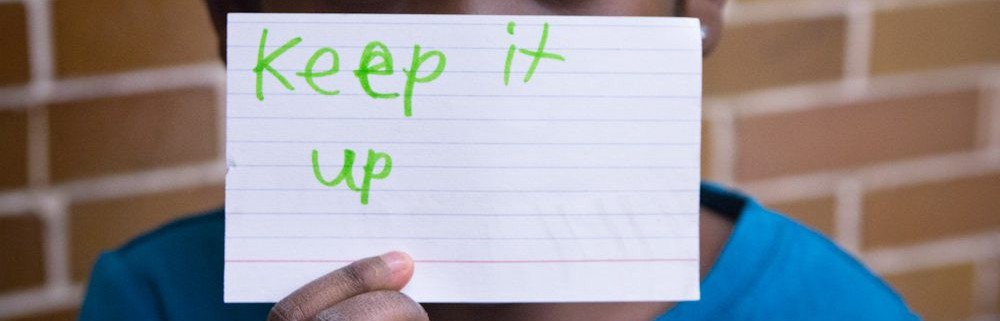 Keep it
up